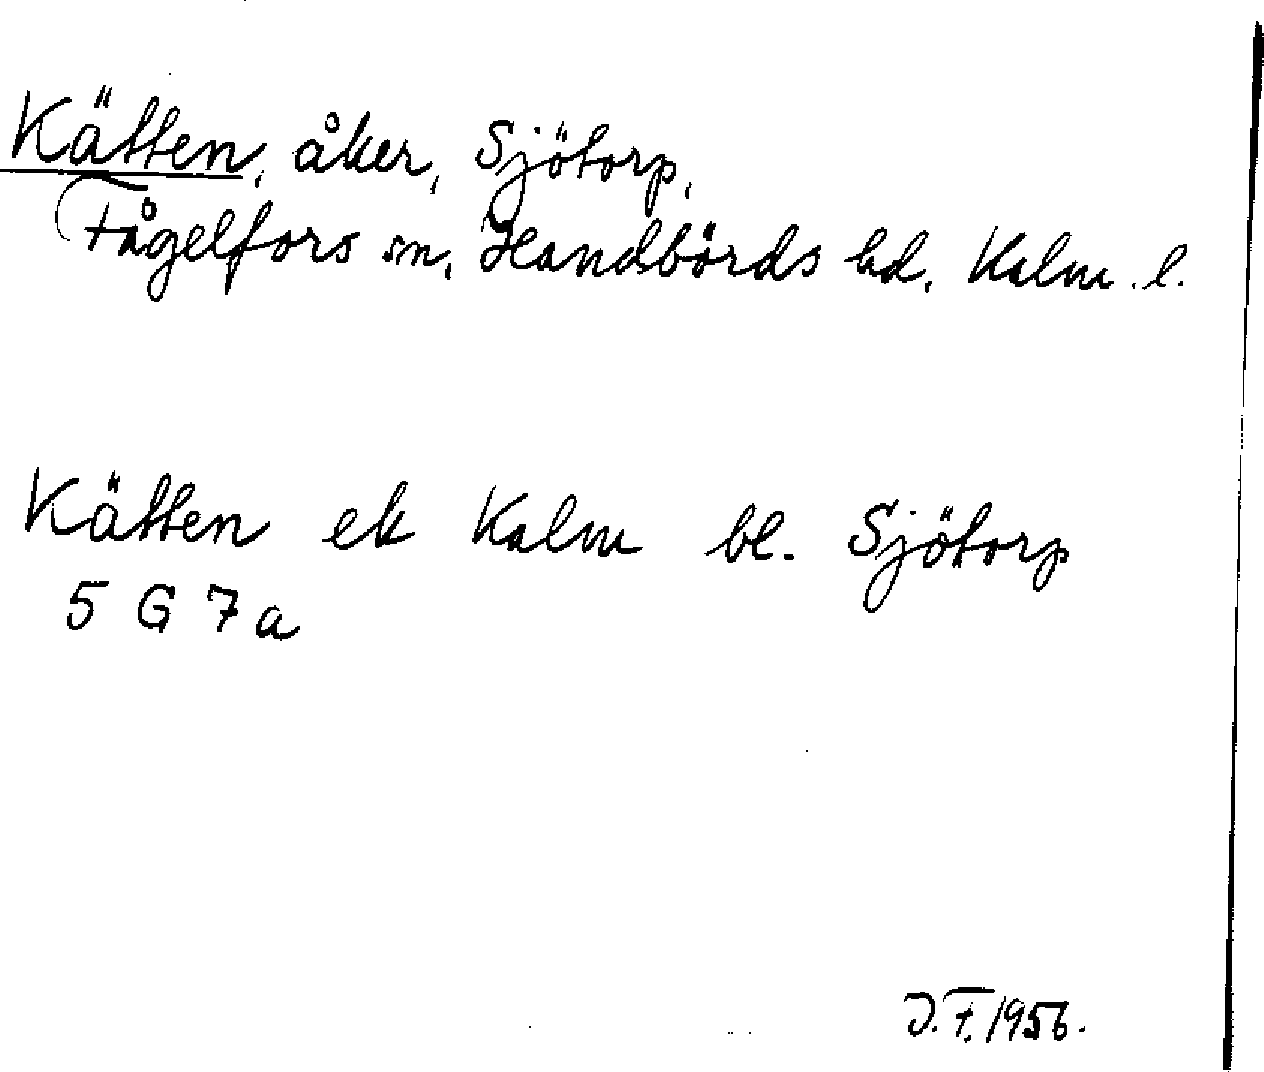 Kätten, åker, Sjötorp,
Fågelfors sn, Handbörds hd, Kalm. l.
Kätten ek Kalm bl. Sjötorp
5 G 7 a
J. F. 1956.